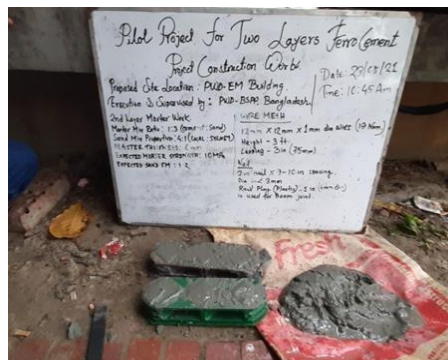 Pilot Project for Two Layers Ferrocement
Project Construction Works
Date: 23/05/21
Time: 10:45 Am
Proposed Site Location: PWD-EM Building.
Execution & Supervised by: PWD-BSPP, Bangladesh
2nd Layer Morter Work
Morter Mix Ratio: 1:3 (Cement: Sand)
Sand Mix Proportion: 4:1 (Local: SYLHET)
EXPECTED MORTER STRENGTH: 10MPa
EXPECTED SAND FM: 1.2
WIRE MESH
12mm X 12mm X 1mm dia wires
Height - 3 ft.
Lapping - 3 in (75mm)
Nail
2 in nail X 9-10 in spacing.
Dia 3mm
Rowl Plug (Plastic)
is used for Beam joint.
Fresh